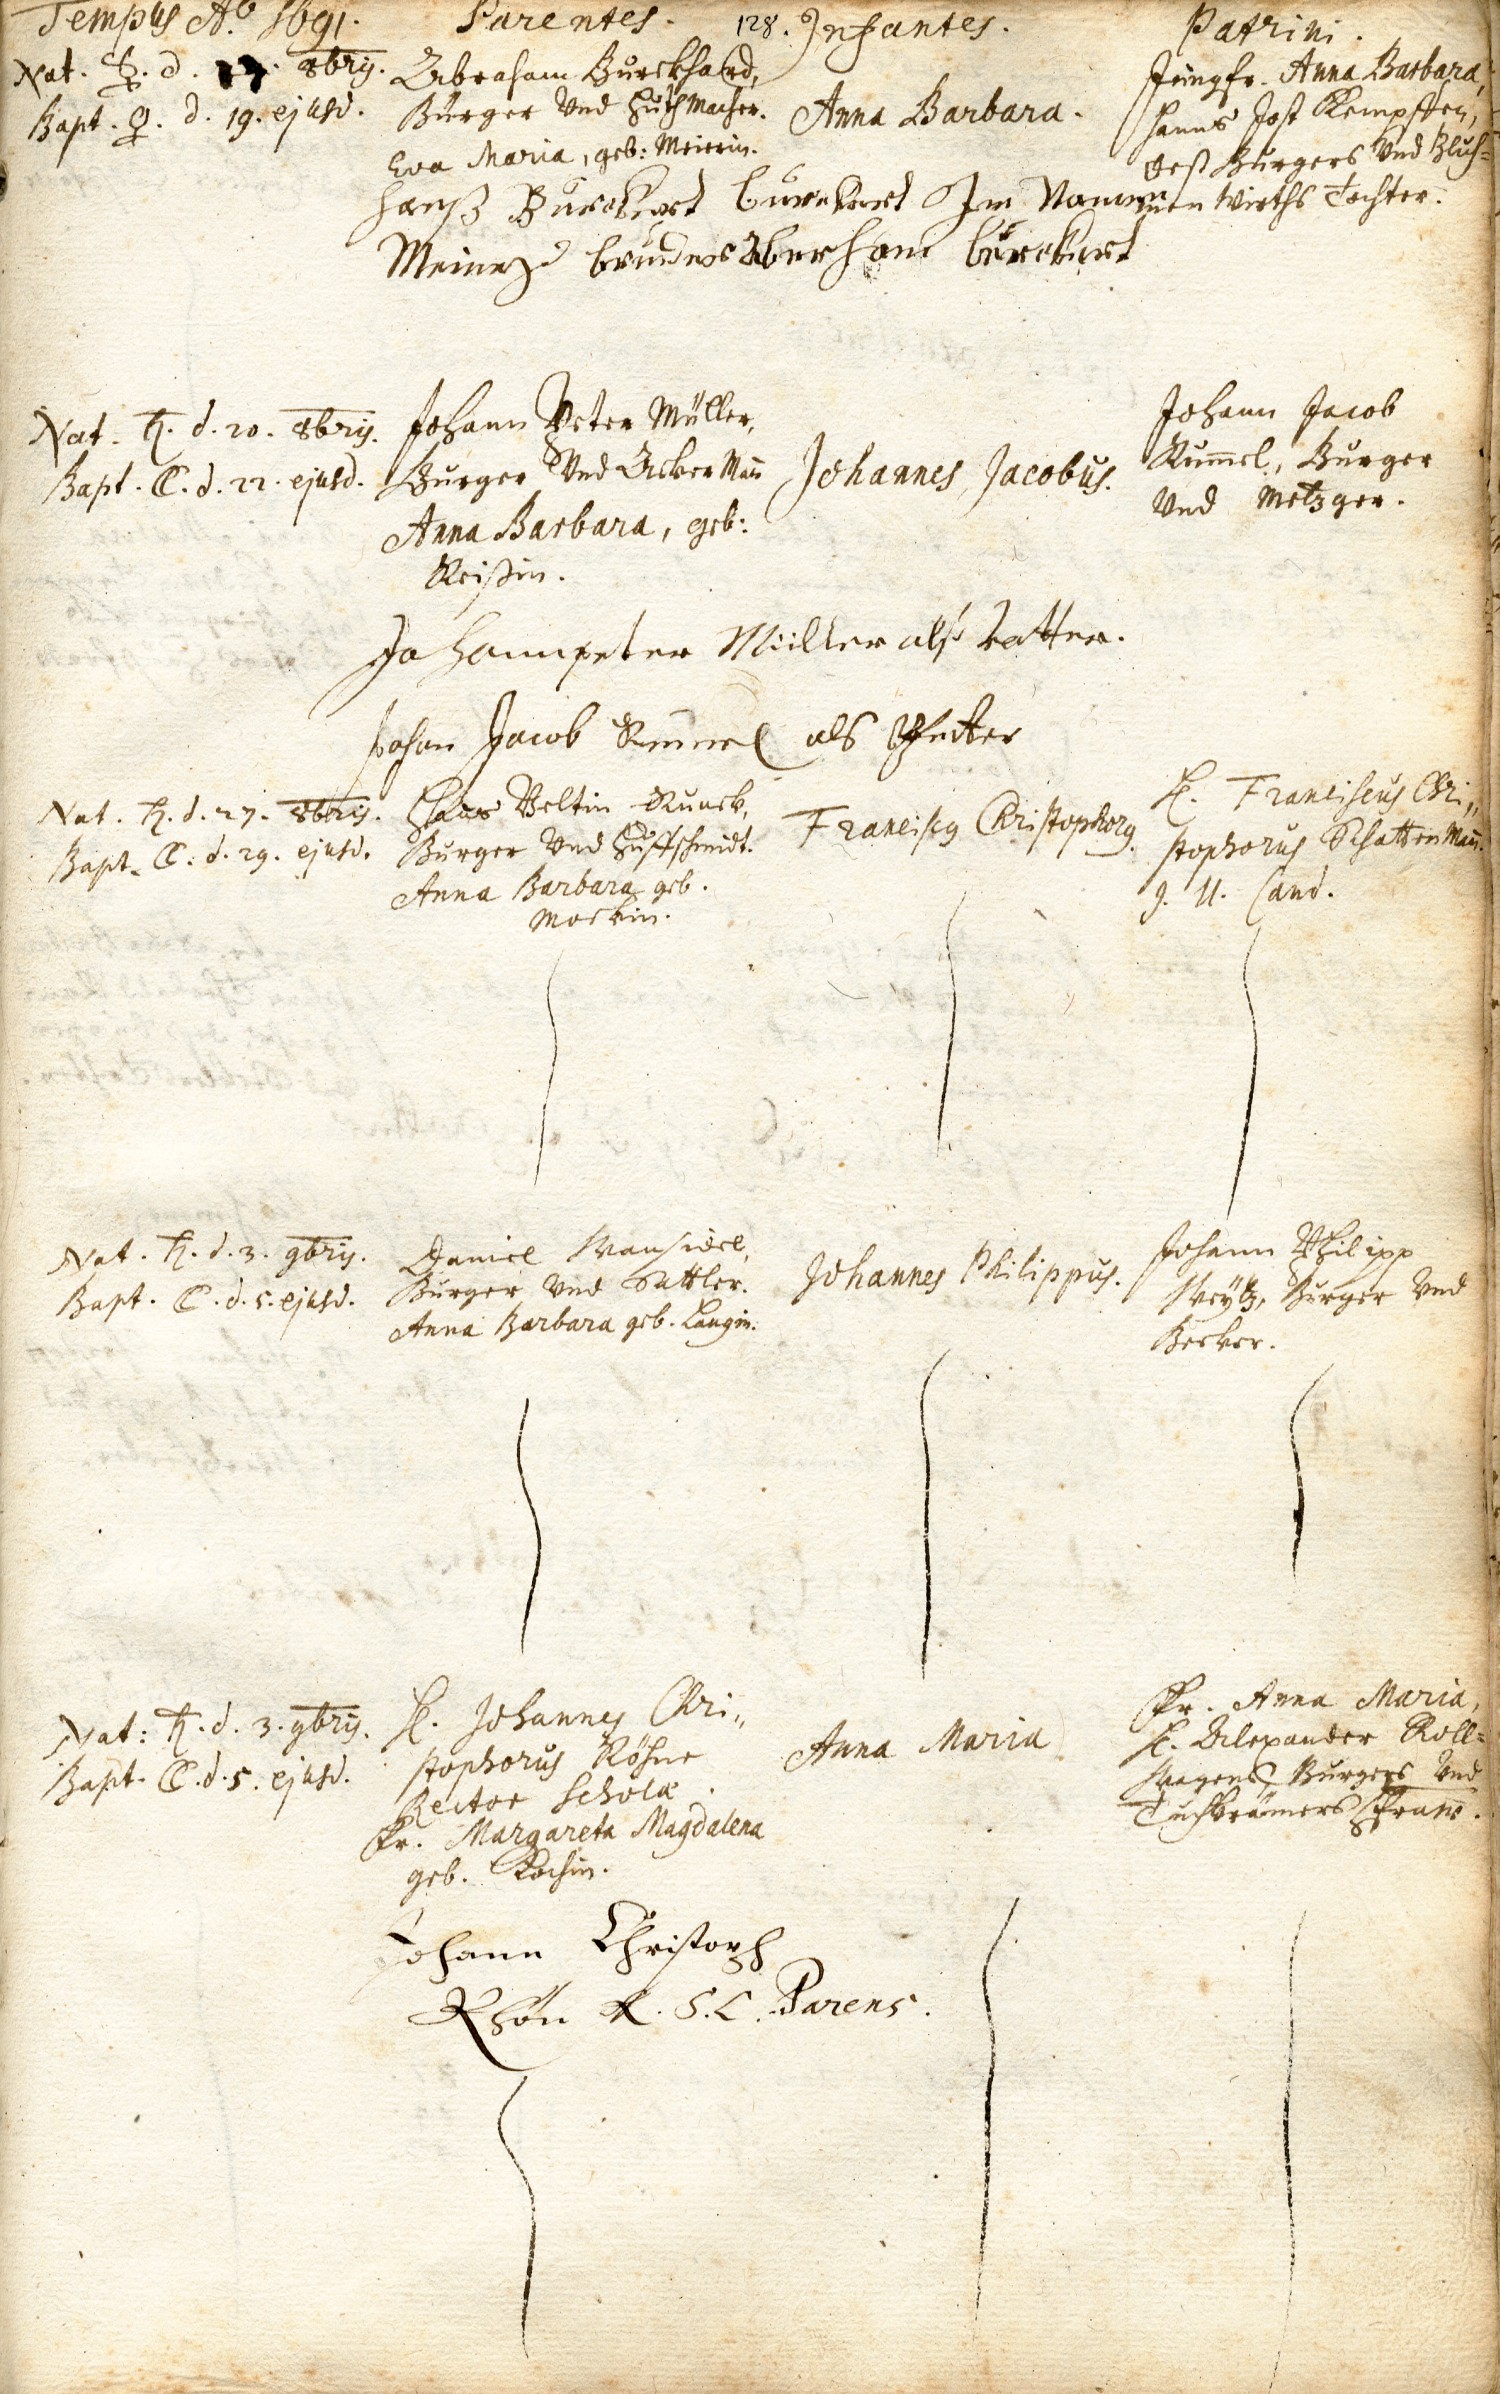 Tempus Aō 1691. Parentes. 128. Infantes. Patrini.
Nat. ☿. d. 17. 8bris.
Bapt. ♀. d. 19. ejusd.
Abraham Burckhard,
Burger Und Huthmacher.
Eva Maria, geb: Meierin.
Anna Barbara.
Jungfr. Anna Barbara,
Hanns Jost Kempffen,
deß Burgers Und Bluh-
men Wirths Tochter.
Hanß Burckart burckart Im Namen
Meineß bruders Aberham burckart
Nat. ♄. d. 20. 8bris.
Bapt. ☾. d. 22. ejusd.
Johann Peter Müller,
Burger Und AckerMañ
Anna Barbara, geb:
Reißin.
Johannes Jacobus.
Johann Jacob
Rum̃el, Burger
Und Metzger.
Johannpeter Müller alß Vatter.
Johan Jacob Rumel als Pfetter
Nat. ♄. d. 27. 8bris.
Bapt. ☾. d. 29. ejusd.
Hans Veltin Runck,
Burger Und Huffschmidt.
Anna Barbara geb.
Mockin.
Franciscus Christophorus.
H. Franciscus Chri„
stophorus SchattenMañ.
J. U. Cand.
Nat. ♄. d. 3. 9bris.
Bapt. ☾. d. 5. ejusd.
Daniel Wansidel,
Burger Und Sattler.
Anna Barbara geb. Langin.
Johannes Philippus.
Johann Philipp
Weytz, Burger Und
Becker.
Nat: ♄. d. 3. 9bris.
Bapt. ☾. d. 5. ejusd.
H. Johannes Chri„
stophorus Röhne
Rector Scholæ.
Fr. Margareta Magdalena
geb. Kochin.
Anna Maria
Fr. Anna Maria,
H. Alexander Roll-
Wagens, Burgers Und
Tuchkrämers Fraw.
Johann Christoph
Rhön R. S. C. Parens.